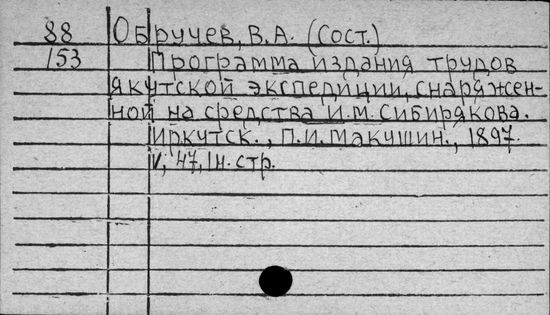 88 Обручев, В.А. (Сост.)
153 Программа издания трудов
якутской экспедиции, снаряжен-
ной на средства И.М. Сибирякова.
Иркутск., П.И. Макушин., 1897.
V, 47, 1н. стр.